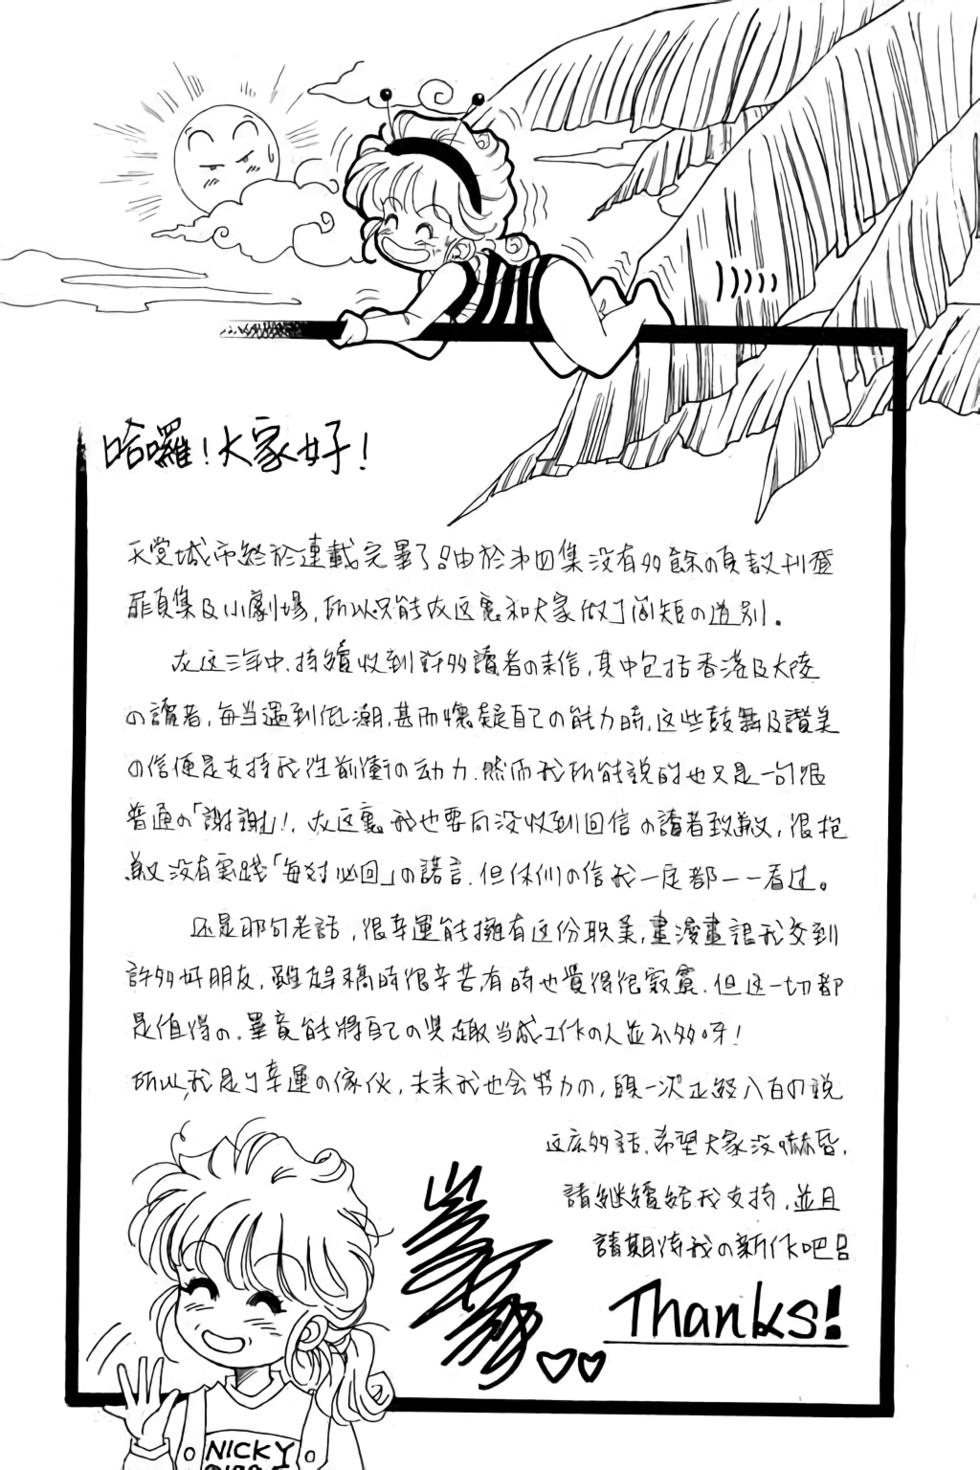 哈囉！大家好！
天堂城市終於連載完畢了!由於第四集沒有多餘の頁數刊登
扉頁集及小劇場，所以只能在这裏和大家做丁简短の道別。
在这三年中，持續收到許多讀者の來信，其中包括香港及大陸
の讀者，每当遇到低潮，甚而懷疑自己の能力時，这些鼓舞及讚美
の信便是支持我往前衝の动力．然而我所能說的也只是一句很
普通の「謝謝」!．在这裏我也要向沒收到回信の讀者致歉，很抱
歉沒有實踐「每封必回」の諾言．但你們の信我一定都一一看过。
还是那句老話，很幸運能擁有这份职業，畫漫畫讓我交到
許多好朋友，雖趕稿時很辛苦，有時也覺得很寂寞．但这一切都
是值得の．畢竟能將自己の興趣当成工作の人並不多呀！
所以，我是丁幸運の傢伙，未來我也会努力の，頭一次正經八百の說
这広多話，希望大家沒嚇昏，
請继續給我支持，並且
請期待我の新作吧!!
Thanks!
NICKY